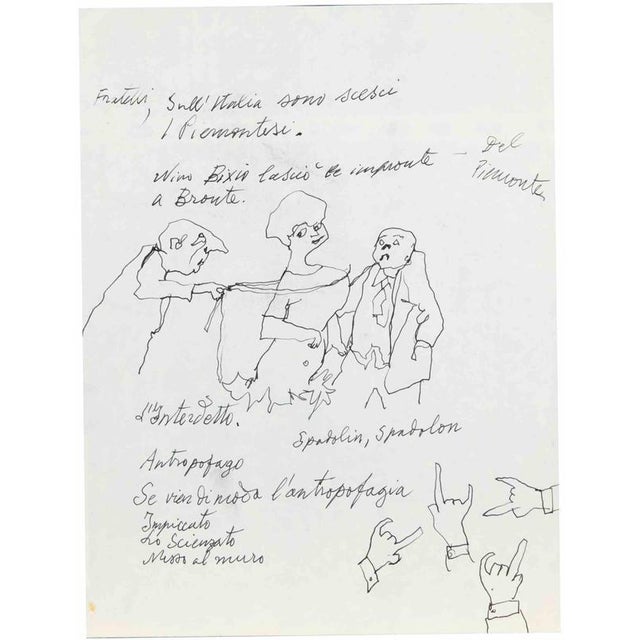 Fratelli, Sull'Italia sono scesci
I Piemontesi.
Nino Bixio lasciò le impronte — Del Piemonte
a Bronte.
L'Interdetto.
Spadolin, Spadolon
Antropofago
Se vien di moda l'antropofagia
Impiccato
Lo Scienzato
Messo al muro